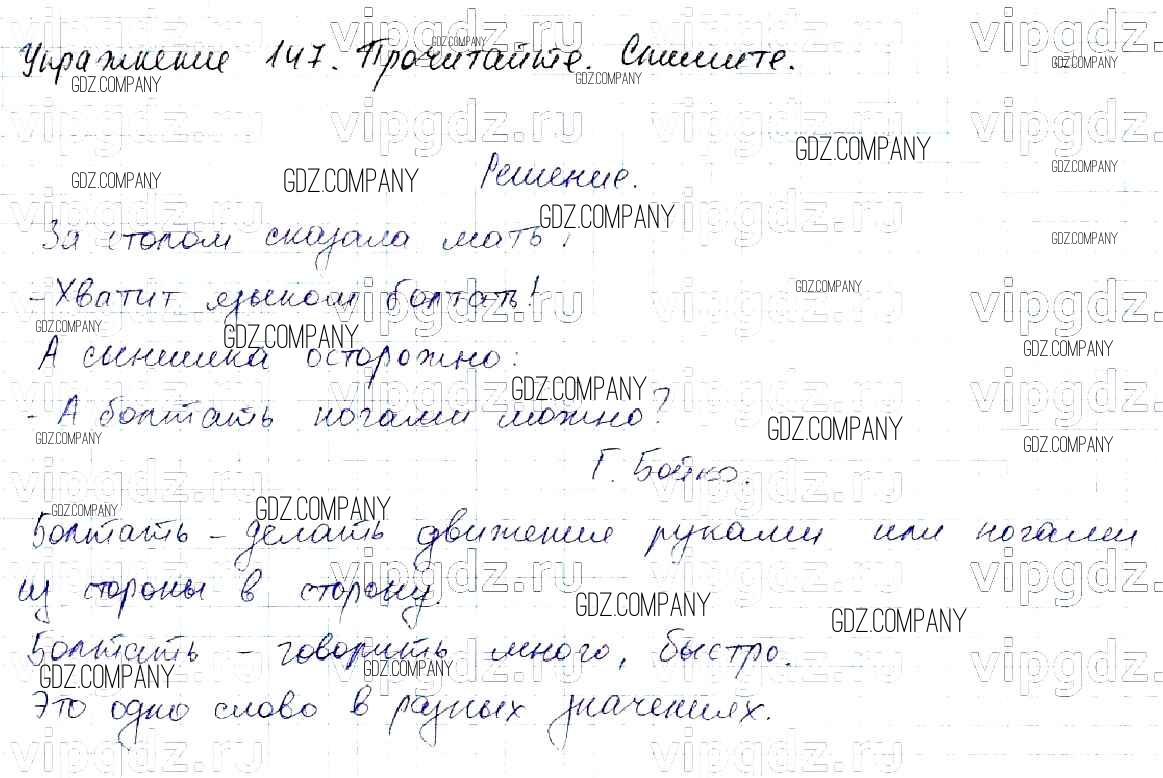 Упражнение 147. Прочитайте. Спишите.
Решение.
За столом сказала мать:
- Хватит языком болтать!
А сынишка осторожно:
- А болтать ногами можно?
Г. Бойко.
Болтать - делать движение руками или ногами
из стороны в сторону.
Болтать - говорить много, быстро.
Это одно слово в разных значениях.
vipgdz.ru
GDZ.COMPANY